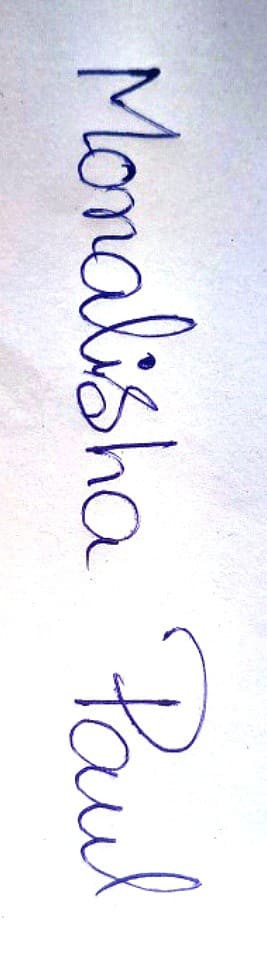 Monalisha Paul